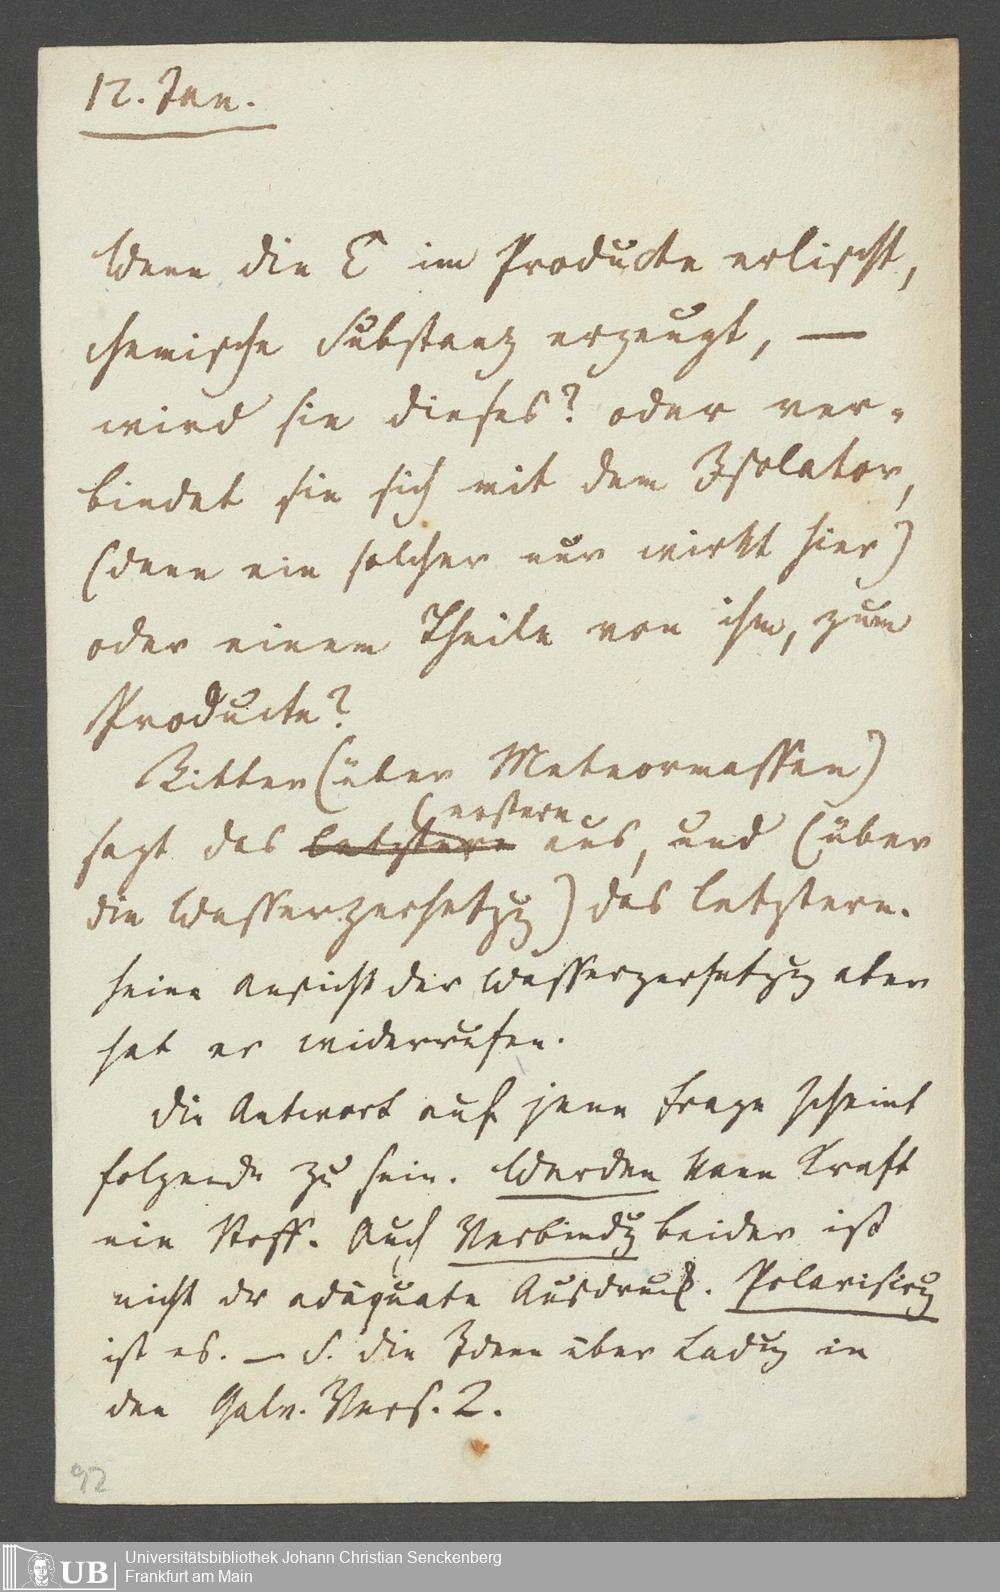 12. Jan.
Wenn die E im Producte erlischt,
chemische Substanz erzeugt, —
wird sie dieses? oder ver-
bindet sie sich mit dem Isolator,
(denn ein solcher nur wirkt hier)
oder einem Theile von ihm, zum
Producte?
Ritter (über Meteormassen)
erstere
sagt das letztere aus, und (über
die Wasserzersetzg) das letztere.
Seine Ansicht der Wasserzersetzg aber
hat er widerrufen.
Die Antwort auf jene Frage scheint
folgende zu sein. Werden kann Kraft
ein Stoff. Auch Verbindg beider ist
nicht dr adäquate Ausdruck. Polarisirg
ist es. — S. die Ideen über Ladg in
den Galv. Vers. 2.
92
UB
Universitätsbibliothek Johann Christian Senckenberg
Frankfurt am Main